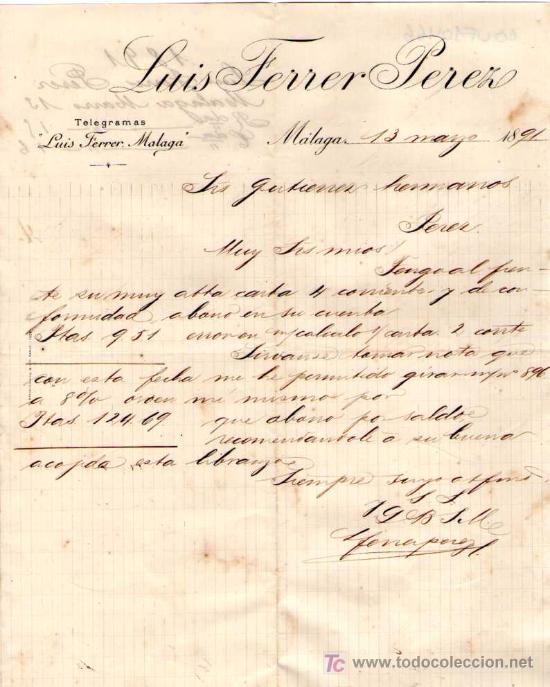 Luis Ferrer Perez
Telegramas
"Luis Ferrer. Malaga"
Málaga, 13 mayo 1891
Srs Gutierrez hermanos
Jerez
Muy Srs mios/
Tengo al fren-
te su muy atta carta 4 corriente y de con-
formidad, abono en su cuenta
Ptas 9.51 error en m/ calculo s/ carta 2 corrte
Sirvanse tomar nota que
con esta fecha me he permitido girar m/ nº 896
a 8 d/v orden mi mismo por
Ptas. 124.09 que abono por saldo
recomendandole a su buena
acojida esta libranza
Siempre suyo
S. S.
Q B S M
Ferrer perez
TC www.todocoleccion.net